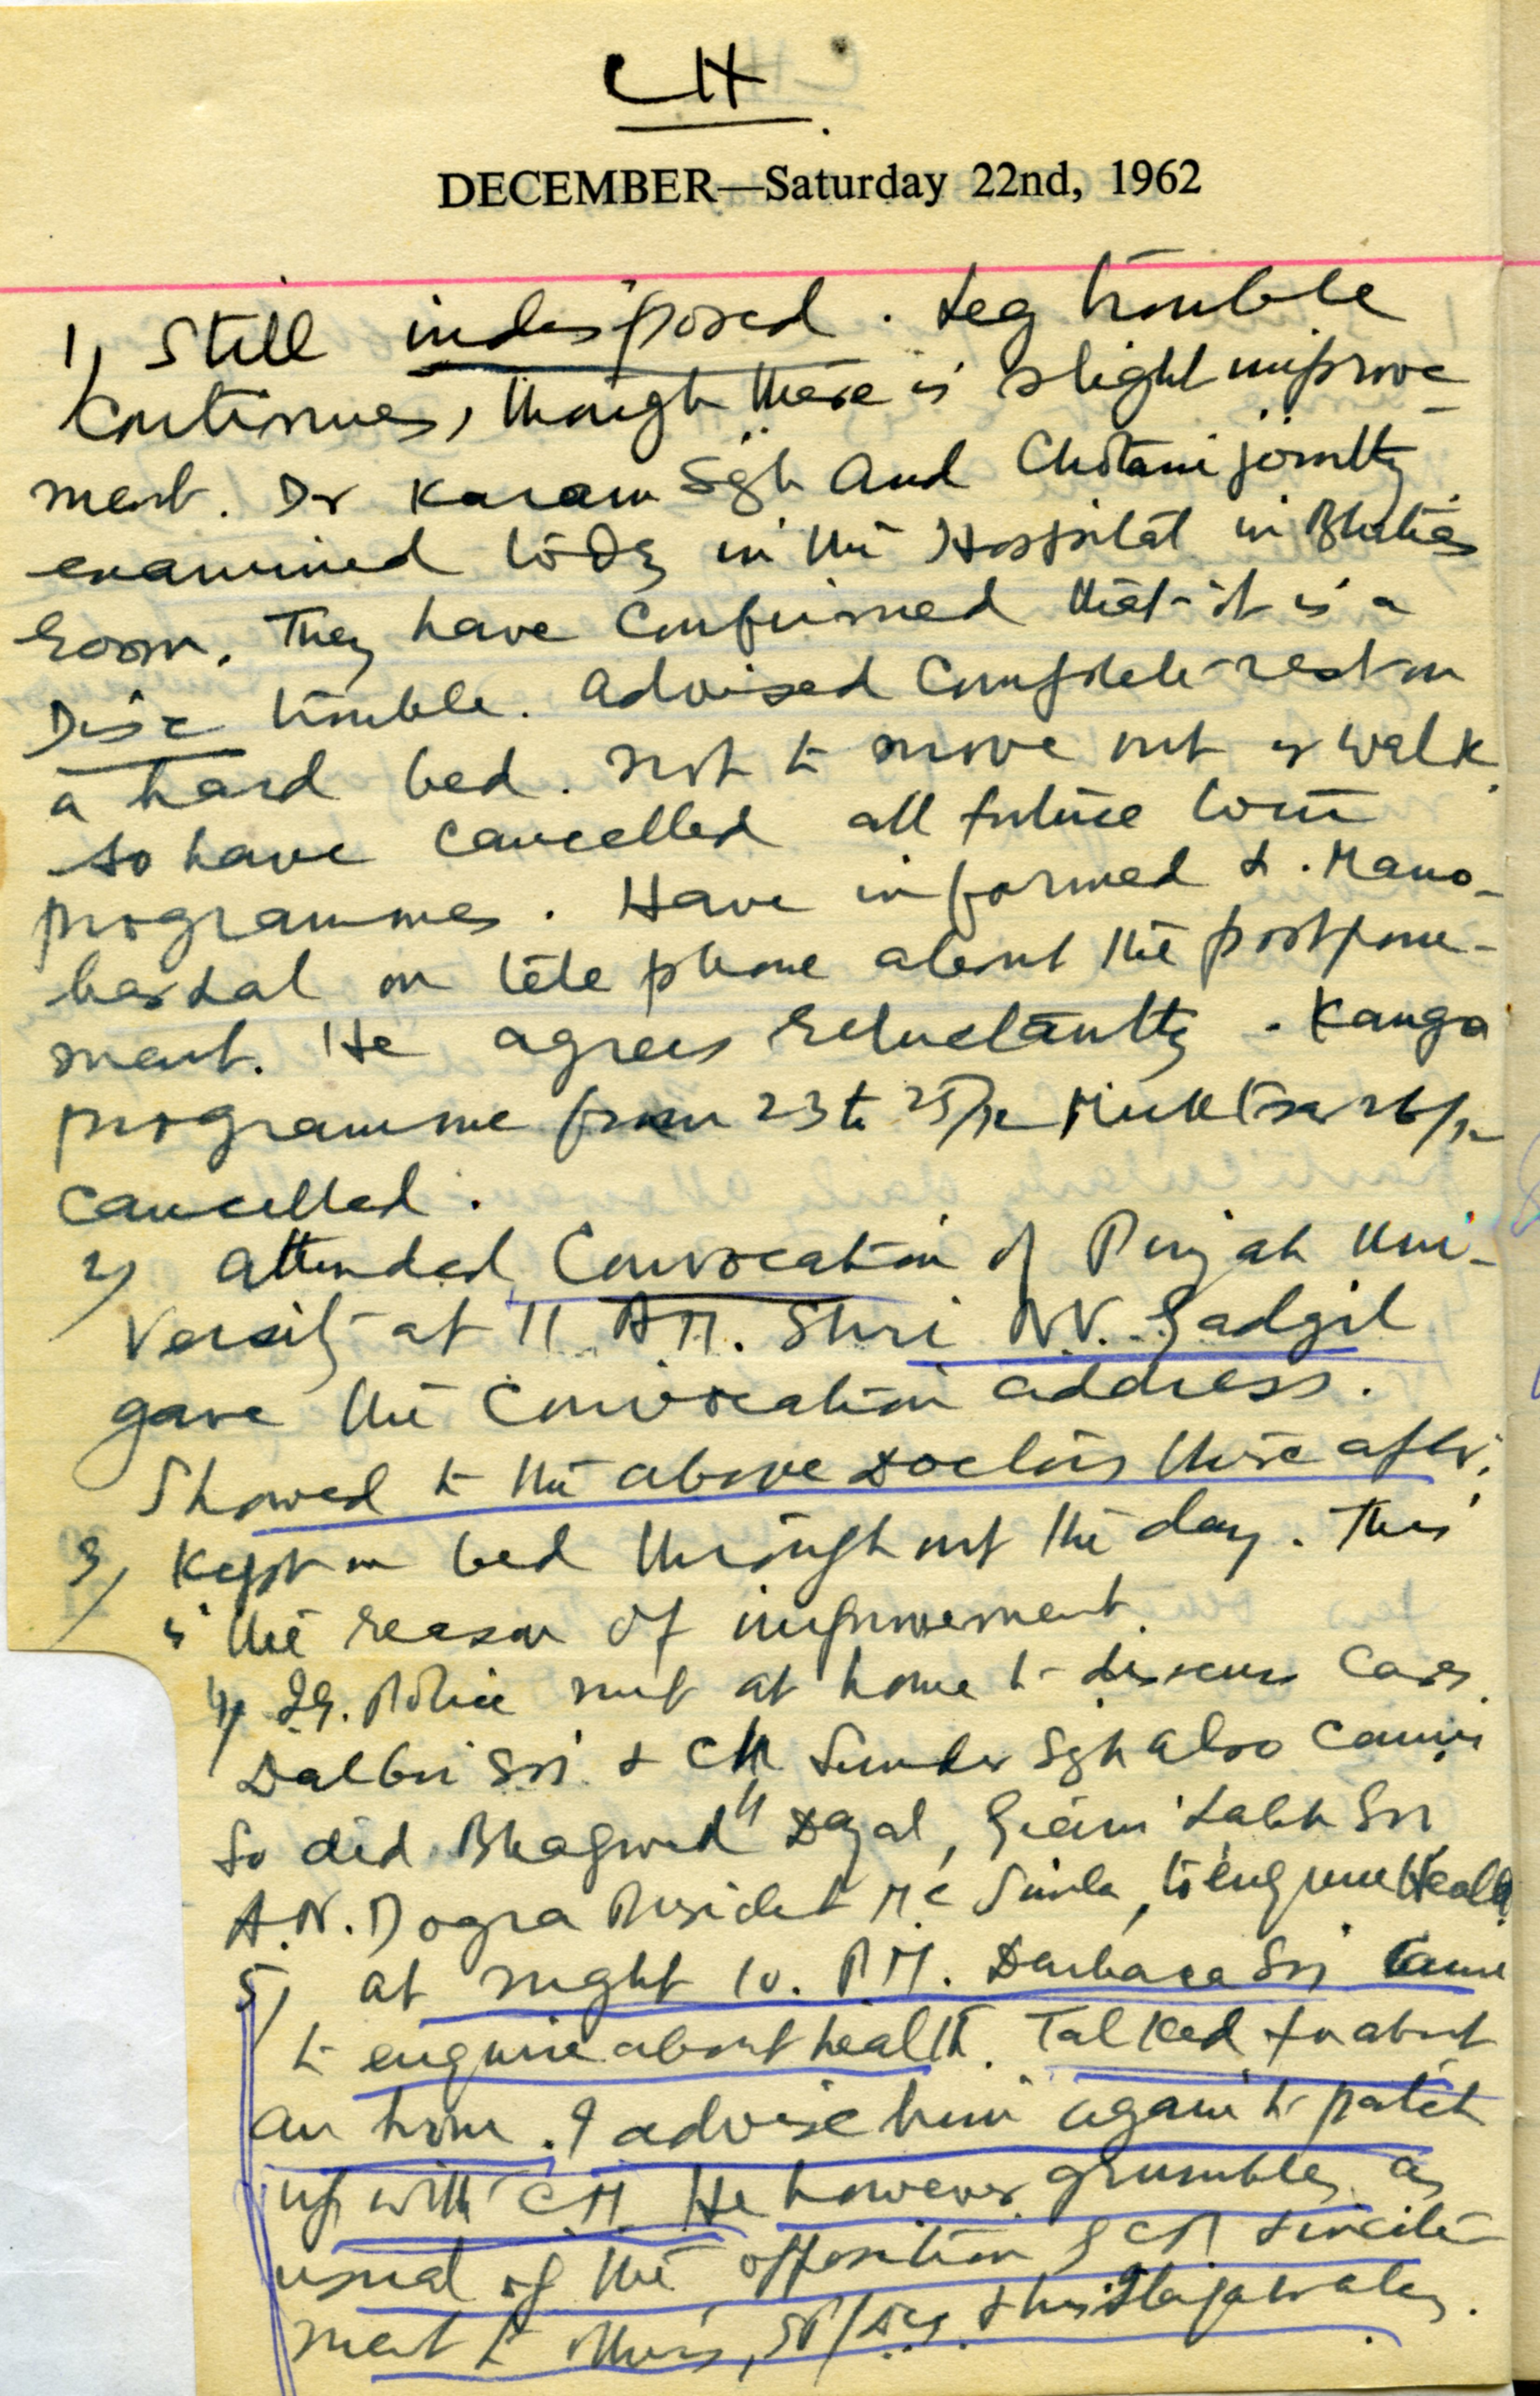 CH
DECEMBER—Saturday 22nd, 1962
1) Still indisposed. Leg trouble
continues, though there is slight improve-
ment. Dr Karam Sgh and Chotani jointly
examined today in the Hospital in Bhatias
room. They have confirmed that it is a
Disc trouble. Advised complete rest on
a hard bed. Not to move out or walk.
So have cancelled all future tour
programmes. Have informed L. Mano-
harlal on telephone about the postpone-
ment. He agrees reluctantly. Kangra
programme from 23 to 25/12 Muktsar 26/12
cancelled.
2) Attended Convocation of Punjab Uni-
versity at 11 AM. Shri N.V. Gadgil
gave the Convocation address.
Showed to the above Doctors thereafter.
3) Kept on bed throughout the day. This
is the reason of improvement.
4) IG. Police met at home to discuss cases.
Dalbir Sri & Ch Sunder Sgh also came
So did Bhagwad Dayal, Giani Labh Sri
A.N. Dogra President M.C Simla, to enquire Health
5) at night 10. P.M. Darbara Sri came
to enquire about health. Talked for about
an hour. I advise him again to patch
up with CM. He however grumbles as
usual of the opposition of CM & incite-
ment to others,